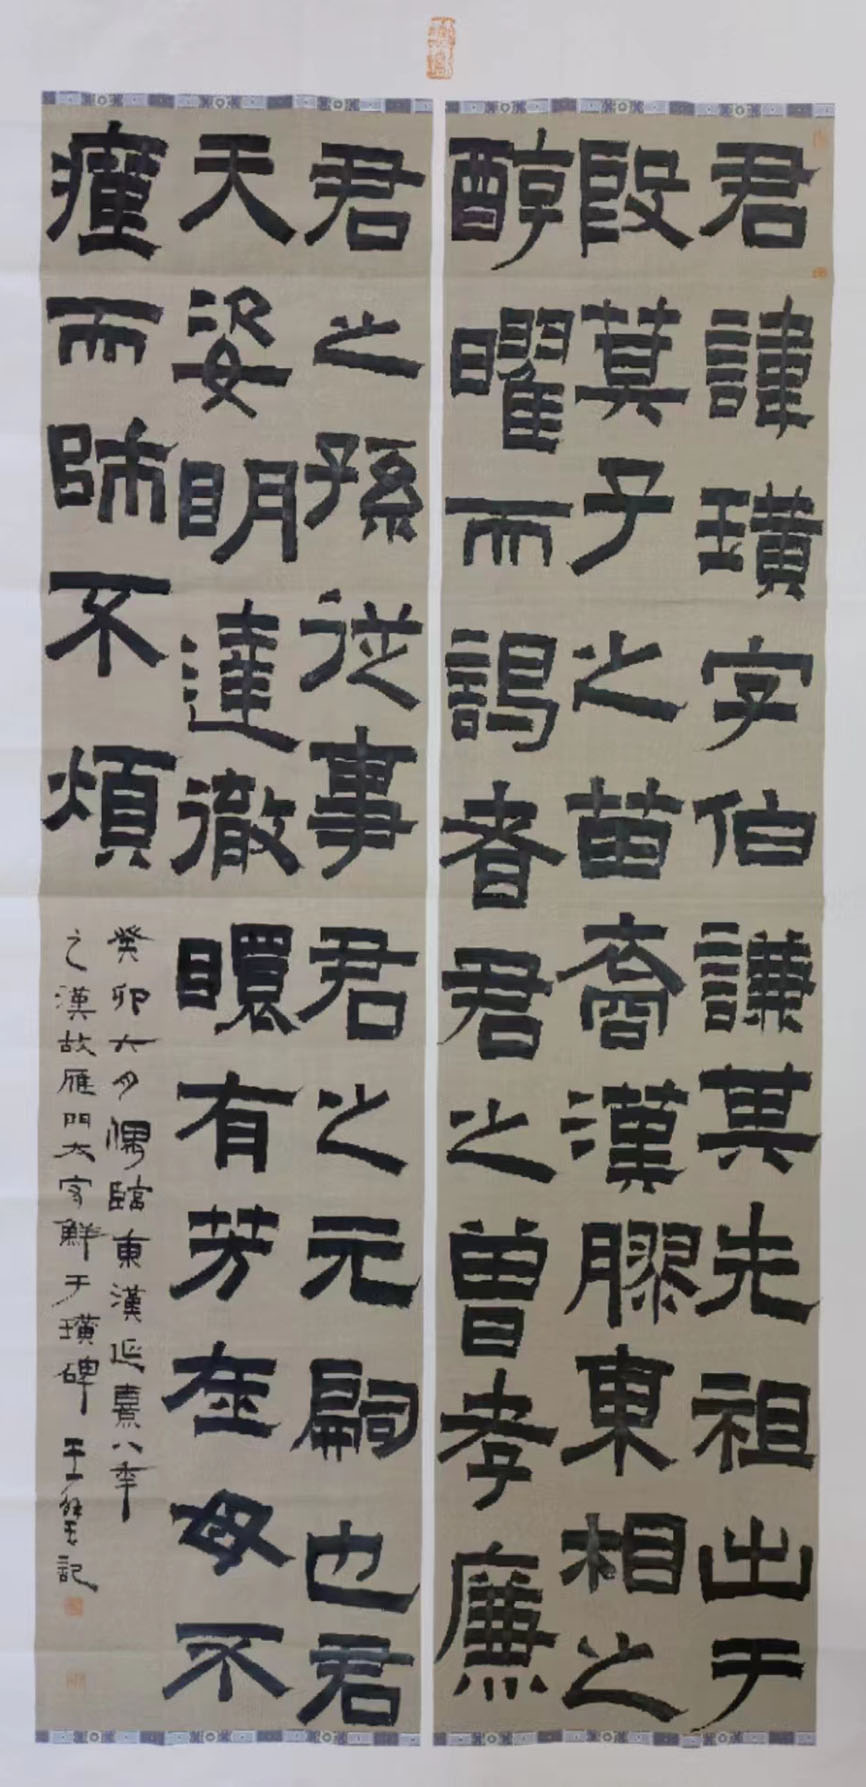 君諱璜字伯謙其先祖出于
殷箕子之苗裔漢膠東相之
醇曜而謁者君之曾孝廉
君之孫從事君之元嗣也君
天姿明達徹䁵有芳在母不
瘽而師不煩
癸卯六月偶臨東漢延熹八年
之漢故雁門太守鮮于璜碑 王記